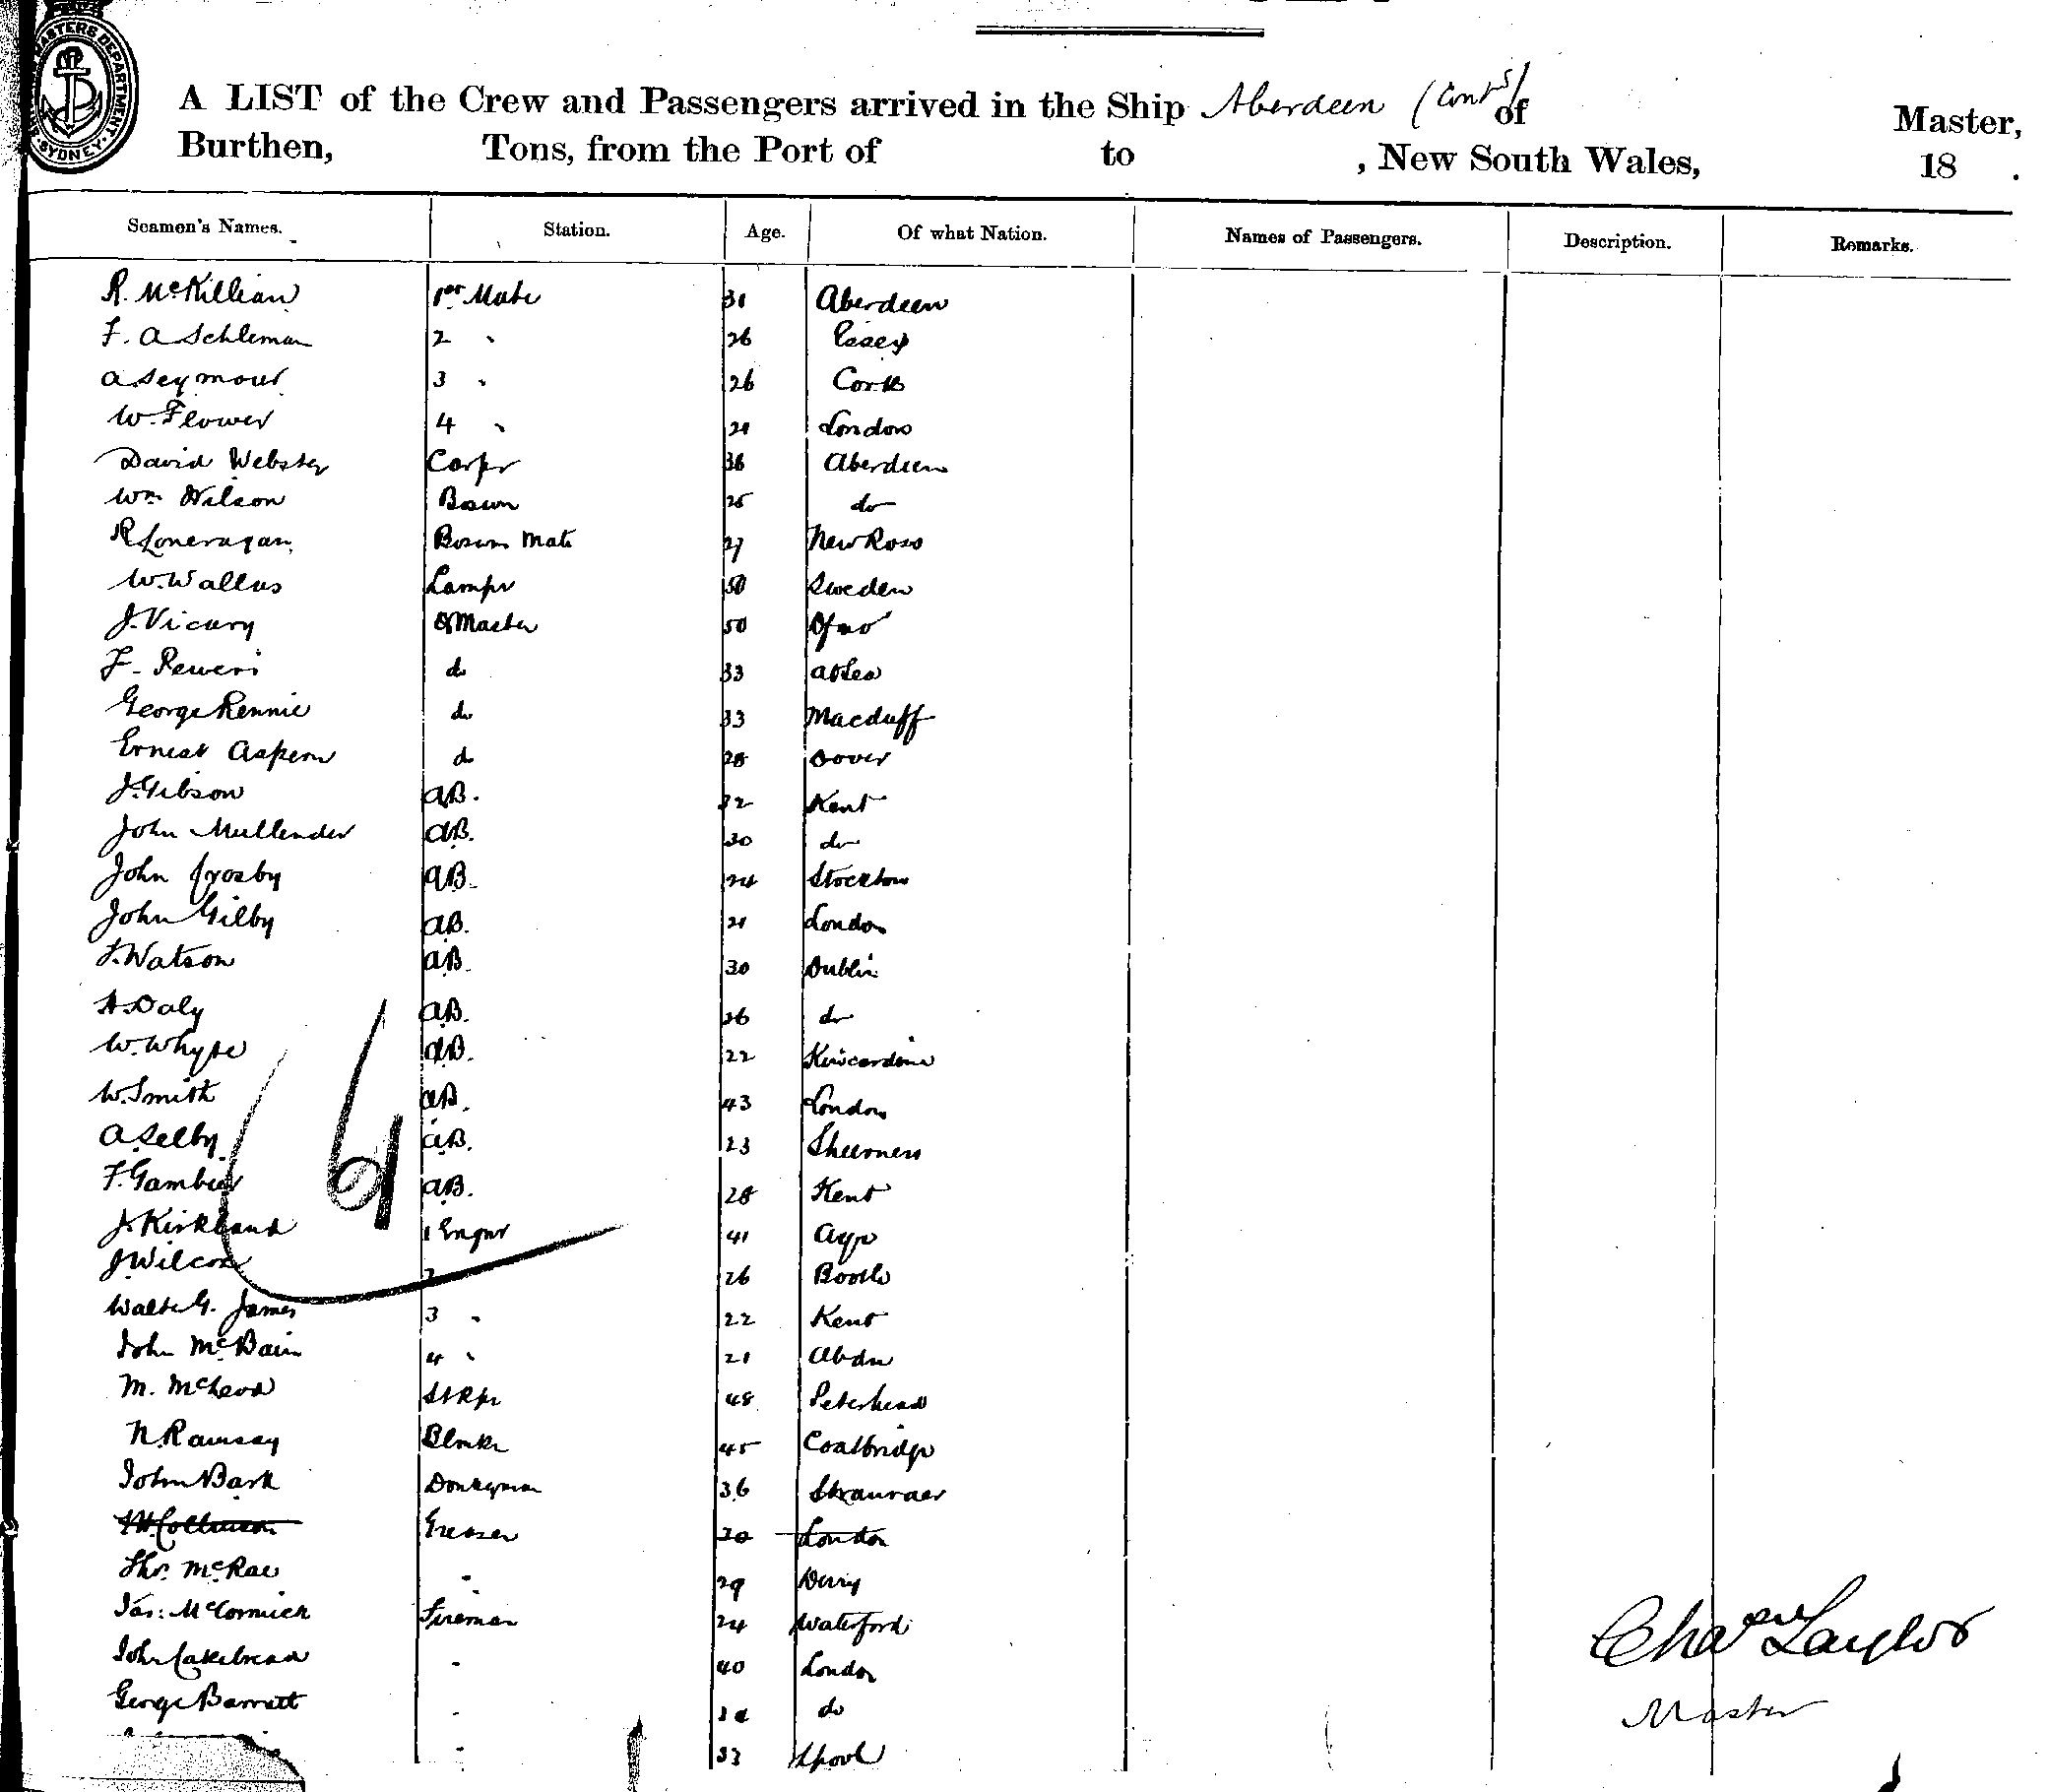 MASTERS DEPARTMENT
SYDNEY
A LIST of the Crew and Passengers arrived in the Ship Aberdeen (Contd) of Master,
Burthen, Tons, from the Port of to , New South Wales, 18 .
Seamen's Names. Station. Age. Of what Nation. Names of Passengers. Description. Remarks.
R. McKillian 1st Mate 31 Aberdeen
F. A Schleman 2 " 26 Essex
A Seymour 3 " 26 Cork
W. Flower 4 " 21 London
David Webster Carpr 36 Aberdeen
Wm Wilson Bosun 25 do
R Loneragan Bosuns Mate 27 New Ross
W. Wallus Lampr 50 Sweden
J. Vicary Q Master 50
F. do 33 at Sea
George Rennie do 33 Macduff
Ernest Aspern do 28 Dover
J. Gibson AB. 32 Kent
John Mullender AB. 30 do
John Crosby AB. 24 Stockton
John Gilby AB. 21 London
F. Watson AB. 30 Dublin
A. Daly AB. 26 do
W. Whyte AB. 22 Kincardine
W. Smith AB. 43 London
A. Selby AB. 23 Sheerness
F. Gambier AB. 28 Kent
J. Kirkland 1 Engnr 41 Ayr
J Wilcox 2 26 Bootle
Walter G. James 3 " 22 Kent
John McBain 4 " 21 Abdn
M. McLeod StKpr 48 Peterhead
N. Ramsay 45 Coatbridge
John Bark Donkeyman 36 Stranraer
Greaser 30 London
Thos. McRae " 29 Derry
Jas: McCormick Fireman 24 Waterford
John Cakebread " 40 London
George Barrett " do
" 33 Lpool
Chas Taylor
Master